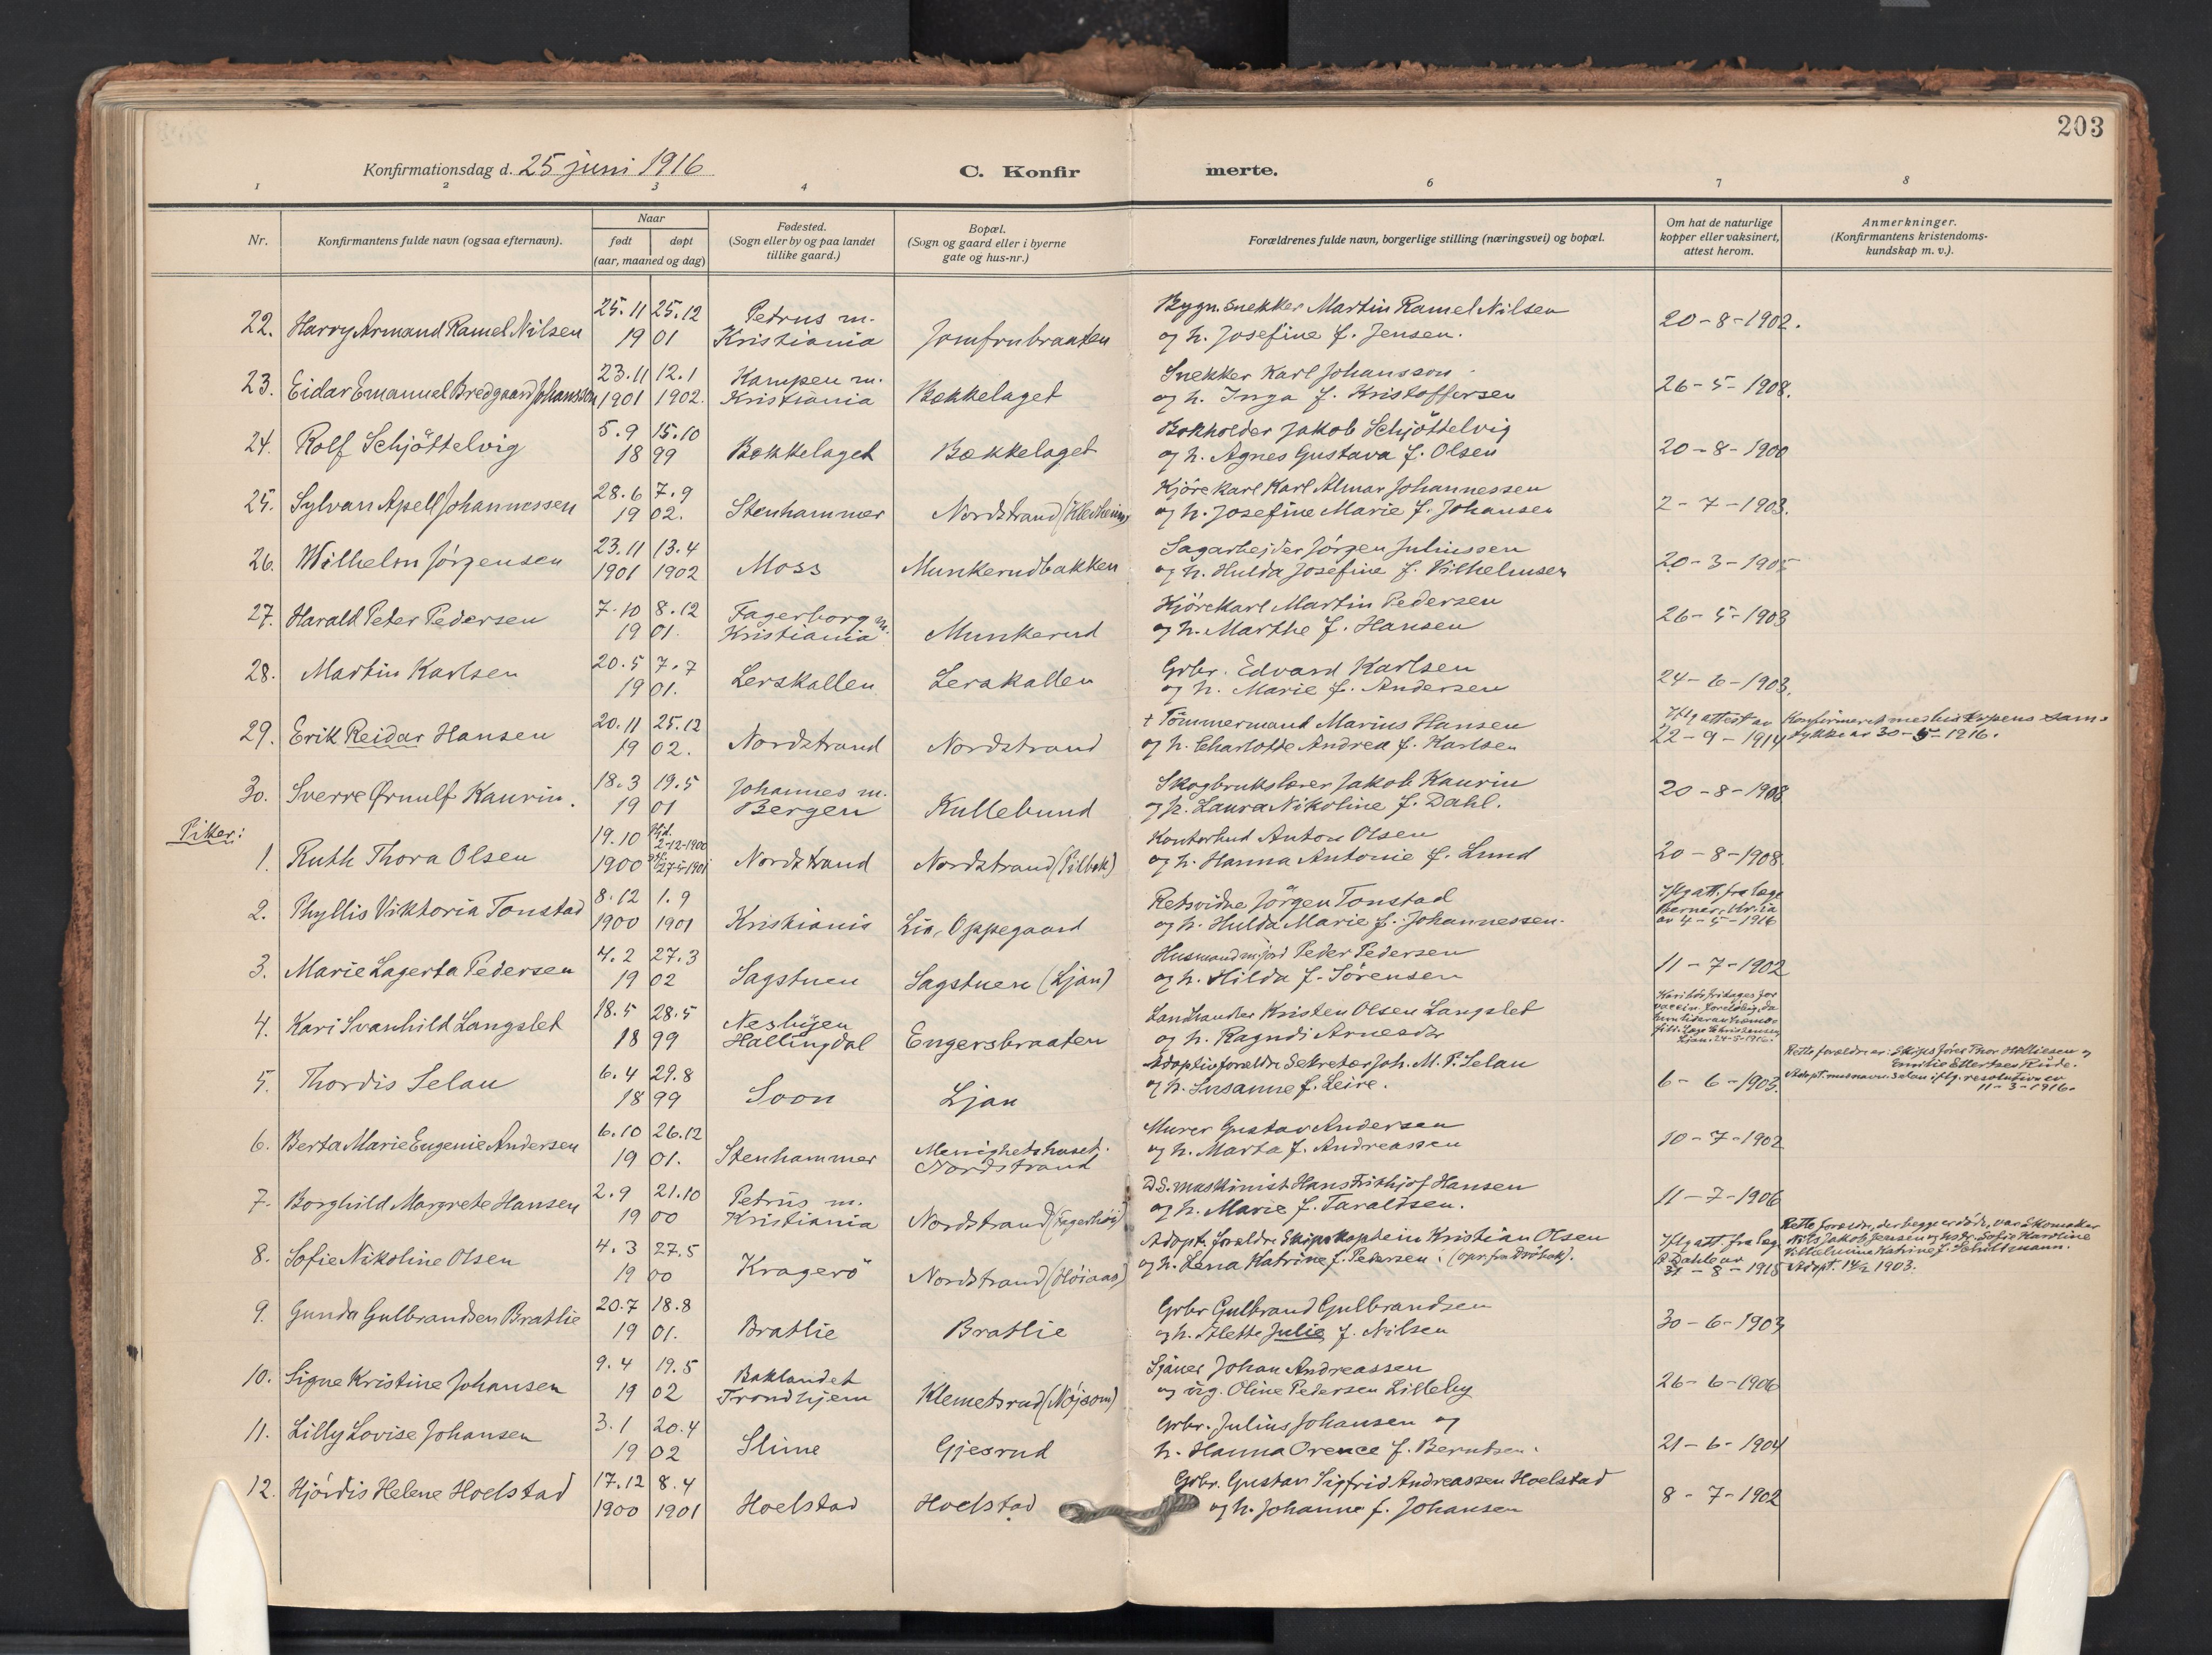 203
Konfirmationsdag d. 25 juni 1916
C. Konfir
merte.
1 2 3 4 6 7 8
Nr.
Konfirmantens fulde navn (ogsaa efternavn).
Naar
født døpt
(aar, maaned og dag)
Fødested.
(Sogn eller by og paa landet
tillike gaard.)
Bopæl.
(Sogn og gaard eller i byerne
gate og hus-nr.)
Forældrenes fulde navn, borgerlige stilling (næringsvei) og bopæl.
Om hat de naturlige
kopper eller vaksinert,
attest herom.
Anmerkninger.
(Konfirmantens kristendoms-
kundskap m. v.).
25.11 25.12 Petrus m. Bygn. snekker Martin Ramel Nilsen
22. Harry Armand Ramel Nilsen 19 01 Kristiania Jomfrubraaten og h. Josefine f. Jensen. 20-8-1902.
23.11 12.1 Kampen m. Snekker Karl Johansson
23. Eidar Emanuel Bredgaard Johansson 1901 1902. Kristiania Bekkelaget og h. Inga f. Kristoffersen 26-5-1908.
5.9 15.10 Bokholder Jakob Schjöttelvig
24. Rolf Schjöttelvig 18 99 Bekkelaget Bekkelaget og h. Agnes Gustava f. Olsen 20-8-1900
28.6 7.9 Kjörekarl Karl Almar Johannessen
25. Sylvan Apell Johannessen 19 02. Stenhammer Nordstrand og h. Josefine Marie f. Johansen 2-7-1903.
23.11 13.4 Sagarbejder Jörgen Juliussen
26. Wilhelm Jörgensen 1901 1902 Moss Munkerudbakken og h. Hulda Josefine f. Vilhelmsen 20-3-1905
7.10 8.12 Fagerborg m. Kjörekarl Martin Pedersen
27. Harald Peter Pedersen 19 01. Kristiania Munkerud og h. Marthe f. Hansen 26-5-1903
20.5 7.7 Grbr. Edvard Karlsen
28. Martin Karlsen 19 01. Lerskallen Lerskallen og h. Marie f. Andersen 24-6-1903.
20.11 25.12 † Tömmermand Marius Hansen Iflg attest av Konfirmeret med biskopens sam-
29. Erik Reidar Hansen 19 02. Nordstrand Nordstrand og h. Charlotte Andrea f. Karlsen 22-9-1914 tykke av 30-5-1916.
18.3 19.5 Johannes m. Skogbrukslærer Jakob Kaurin
30. Sverre Ørnulf Kaurin. 19 01 Bergen Kullebund og h. Laura Nikoline f. Dahl. 20-8-1908
Piker:
19.10 Hjd. 2-12-1900 Kontorbud Anton Olsen
1. Ruth Thora Olsen 1900 27-5-1901 Nordstrand Nordstrand (Pilbak) og h. Hanna Antonie f. Lund 20-8-1908.
8.12 1.9 Retsvidne Jörgen Tonstad Iflg att. fra læge
2. Phyllis Viktoria Tonstad 1900 1901 Kristiania Lia, Oppegaard og h. Hulda Marie f. Johannessen. Berner, Kr.ia
av 4-5-1916
4.2 27.3 Husmand m. jord Peder Pedersen
3. Marie Lagerta Pedersen 19 02 Sagstuen Sagstuen (Ljan) og h. Hilda f. Sörensen 11-7-1902
18.5 28.5 Neshyen Landhandler Kristen Olsen Langslet
4. Kari Svanhild Langslet 18 99 Hallingdal Engersbraaten og h. Ragndi Arnesdr
Ljan. 24-5-1916.
6.4 29.8 Adoptivforældre Sekretær Joh. M. P. Selau Rette forældre er: Skipsfører Thor Holliesen og
5. Thordis Selau 18 99 Soon Ljan og h. Susanne f. Leire. 6-6-1903. Emilie Ellertsen Rüde.
Adopt. m. navn Selau iflg. resolution av
11-3-1916.
6.10 26.12 Murer Gustav Andersen
6. Berta Marie Eugenie Andersen 19 01. Stenhammer Menighetshuset. Nordstrand og h. Marta f. Andreassen 10-7-1902
2.9 21.10 Petrus m. D.S. maskinist Hans Frithjof Hansen
7. Borghild Margrete Hansen 19 00 Kristiania Nordstrand (Fagerhöi) og h. Marie f. Taraldsen. 11-7-1906
4.3 27.5 Adopt. forældre Skipskaptein Kristian Olsen Iflg att fra læge Rette forældre, der begge er döde, var Skomaker
8. Sofie Nikoline Olsen 19 00 Kragerö Nordstrand (Höiaas) og h. Lena Katrine f. Pedersen. (opr. fra Dröbak). Dahl av Nils Jakob Jensen og hstr. Sofie Karoline
31-8-1915 Vilhelmina Katrine f. Schultmann.
Adopt. 14/2 1903.
20.7 18.8 Grbr Gulbrand Gulbrandsen
9. Gunda Gulbrandsen Bratlie 19 01. Bratlie Bratlie og h. Alette Julie f. Nilsen 30-6-1903
9.4 19.5 Baklandet Sjauer Johan Andreassen
10. Signe Kristine Johansen 19 02 Trondhjem Klemetsrud (Nöjsom) og ug. Oline Pedersen Lilleby 26-6-1906
3.1 20.4 Grbr. Julius Johansen og
11. Lilly Lovise Johansen 19 02 Slime Gjesrud h. Hanna Orence f. Berntsen. 21-6-1904
17.12 8.4 Grbr. Gustav Sigfrid Andreassen Hoelstad
12. Hjördis Helene Hoelstad 1900 1901 Hoelstad Hoelstad og h. Johanne f. Johansen 8-7-1902